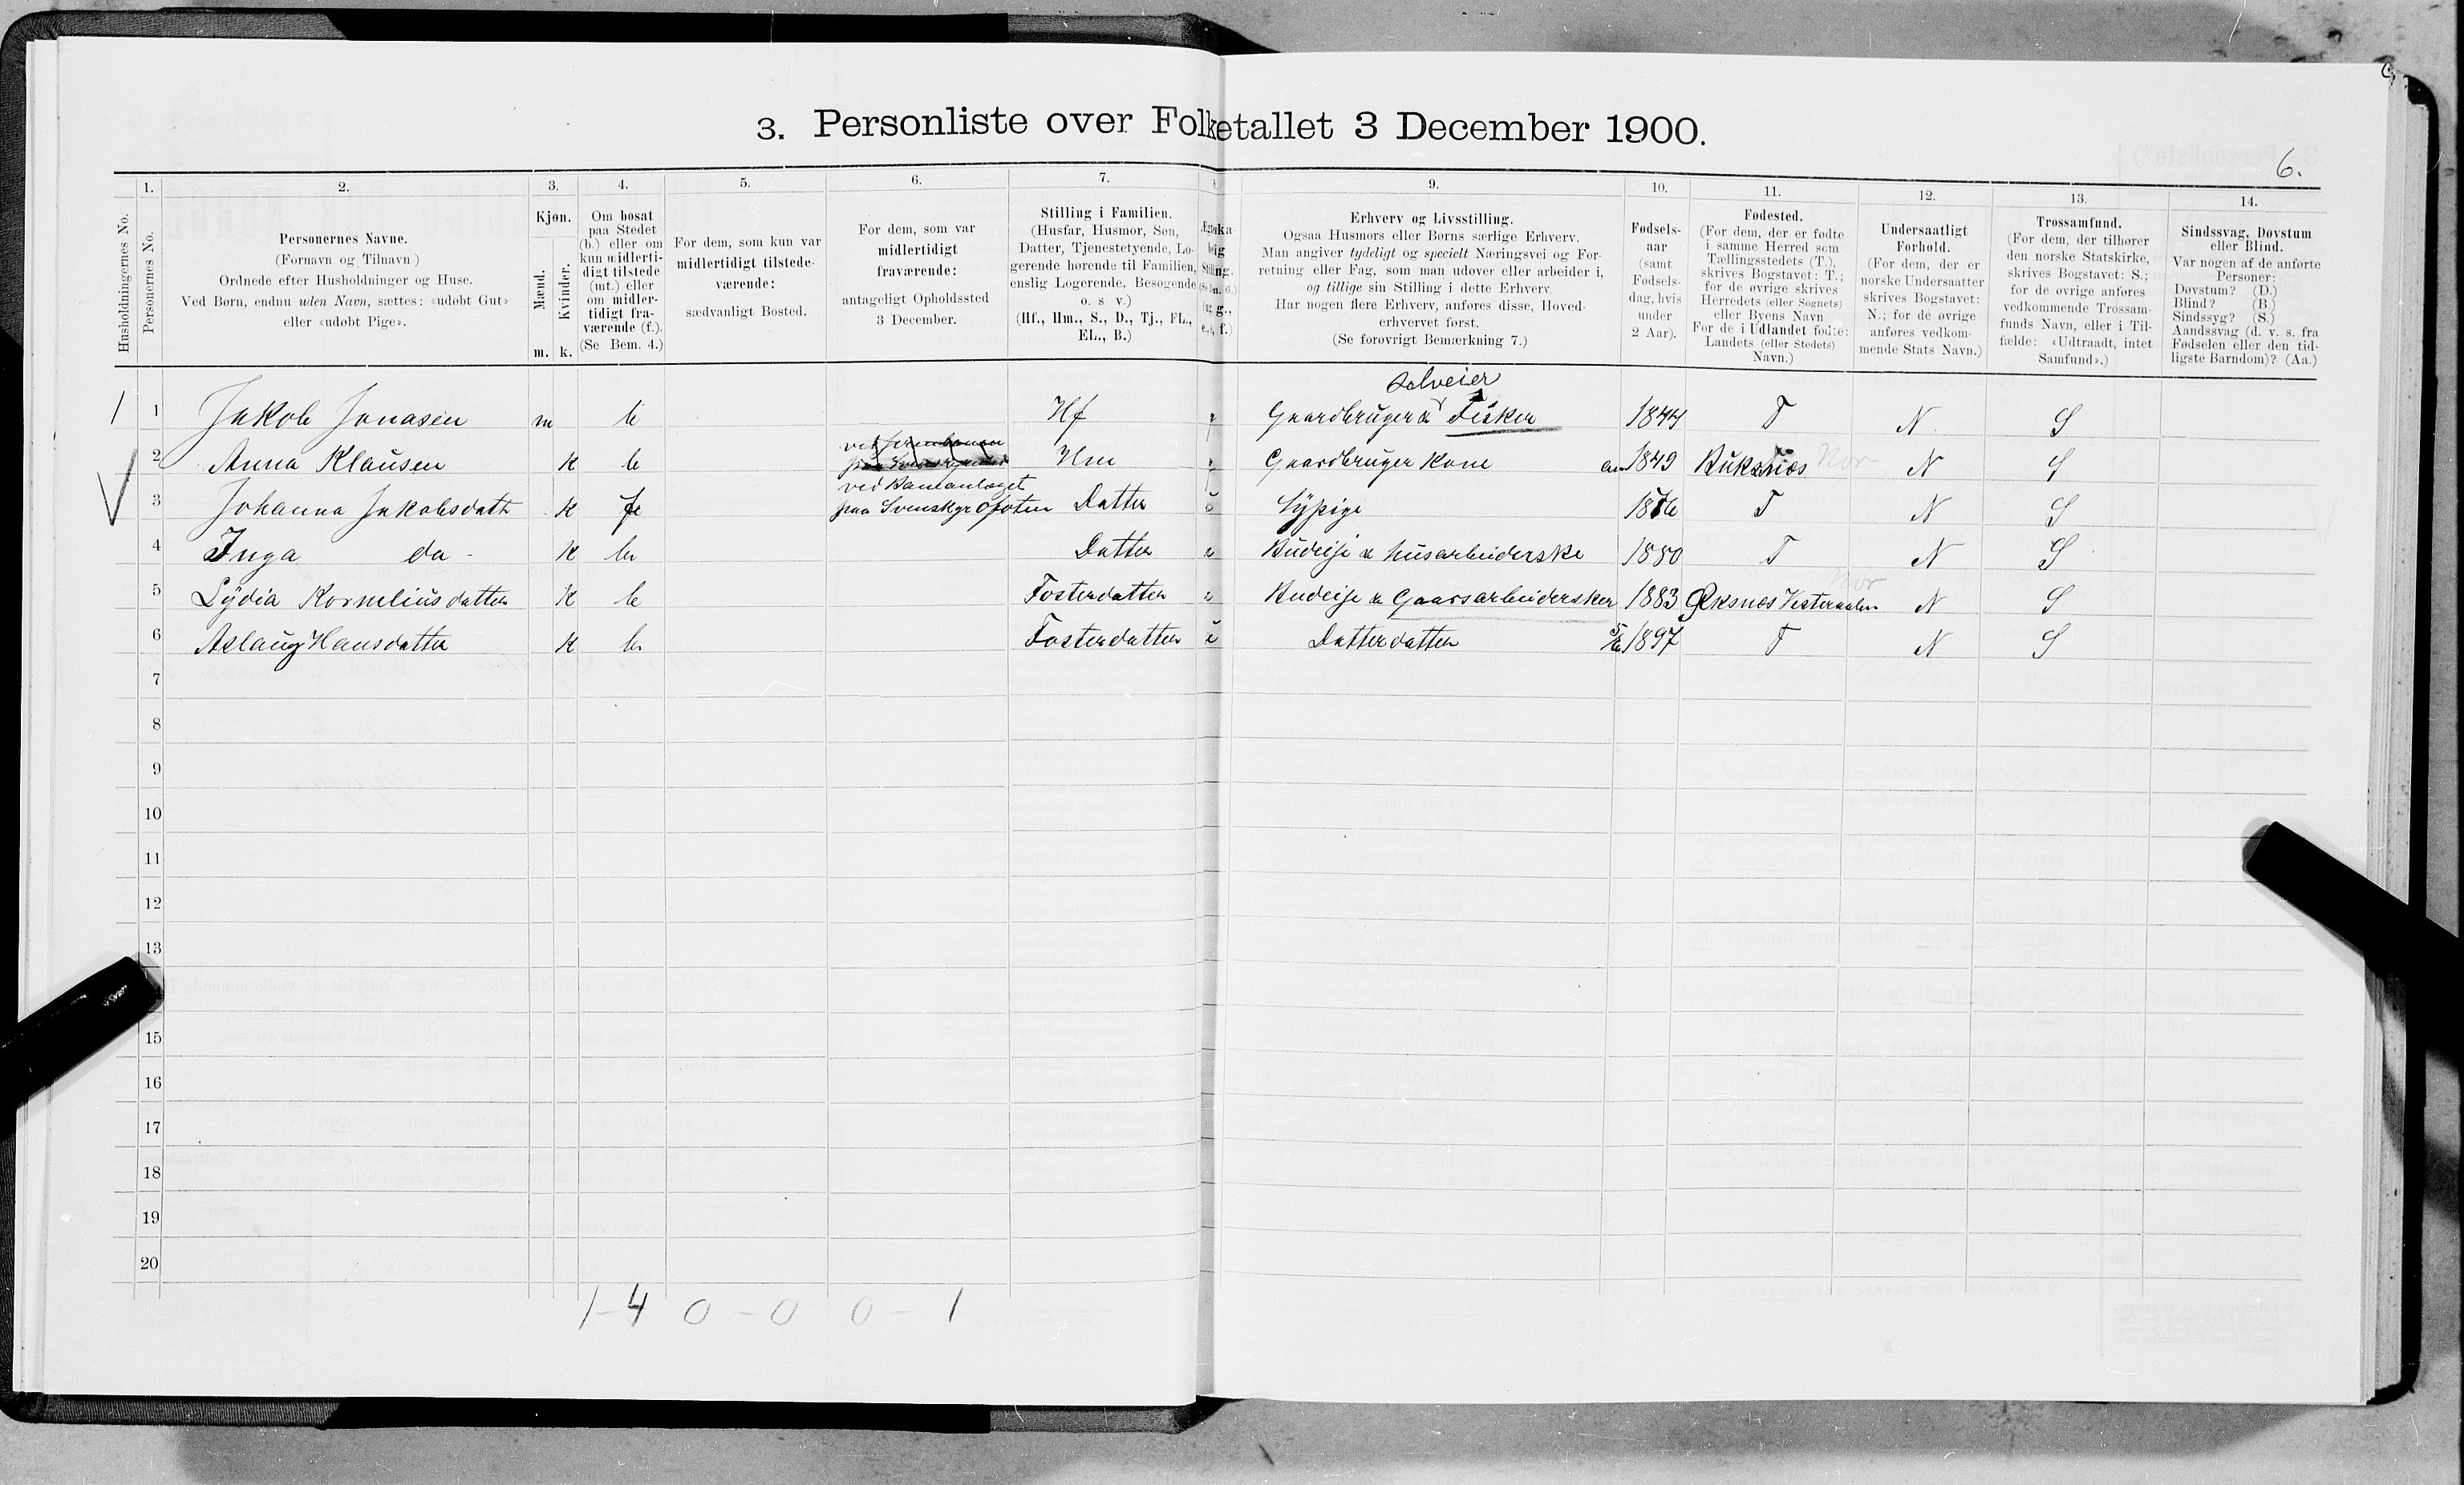 3. Personliste over Folketallet 3 December 1900.
6.
Husholdningernes No.
1.
Personernes No.
2.
Personernes Navne.
(Fornavn og Tilnavn)
Ordnede efter Husholdninger og Huse.
Ved Børn, endnu uden Navn, sættes: «udøbt Gut»
eller «udøbt Pige».
3.
Kjøn.
Mænd.
Kvinder.
m. k.
4.
Om bosat
paa Stedet
(b.) eller om
kun midlerti-
digt tilstede
(mt.) eller
om midler-
tidigt fra-
værende (f.).
(Se Bem. 4.)
5.
For dem, som kun var
midlertidigt tilstede-
værende:
sædvanligt Bosted.
6.
For dem, som var
midlertidigt
fraværende:
antageligt Opholdssted
3 December.
7.
Stilling i Familien.
(Husfar, Husmor, Søn,
Datter, Tjenestetyende, Lo-
gerende hørende til Familien,
enslig Logerende, Besøgende
o. s v.)
(Hf., Hm., S., D., Tj., FL.,
EL., B.)
9.
Erhverv og Livsstilling.
Ogsaa Husmors eller Børns særlige Erhverv.
Man angiver tydeligt og specielt Næringsvei og For-
retning eller Fag, som man udøver eller arbeider i,
og tillige sin Stilling i dette Erhverv.
Har nogen flere Erhverv, anføres disse, Hoved-
erhvervet først.
(Se forøvrigt Bemærkning 7.)
10.
Fødsels-
aar
(samt
Fødsels-
dag, hvis
under
2 Aar).
11.
Fødested.
(For dem, der er fødte
i samme Herred som
Tællingsstedets (T.),
skrives Bogstavet: T.;
for de øvrige skrives
Herredets (eller Sognets)
eller Byens Navn
For de i Udlandet fødte:
Landets (eller Stedets)
Navn.)
12.
Undersaatligt
Forhold.
(For dem, der er
norske Undersaatter
skrives Bogstavet:
N.; for de øvrige
anføres vedkom-
mende Stats Navn.)
13.
Trossamfund.
(For dem, der tilhører
den norske Statskirke,
skrives Bogstavet: S.;
for de øvrige anføres
vedkommende Trossam-
funds Navn, eller i Til-
fælde: «Udtraadt, intet
Samfund».)
14.
Sindssvag, Døvstum
eller Blind.
Var nogen af de anførte
Personer:
Døvstum? (D.)
Blind? (B.)
Sindssyg? (S.)
Aandssvag (d. v. s. fra
Fødselen eller den tid-
ligste Barndom)? (Aa.)
Selveier
1 1 Jakob Jonasen m b Hf g Gaardbruger & Fisker 1844 T N S
2 Anna Klausen K b Hm g Gaardbruger Kone 1849 Buksnæs Nor N S
ved Baneanlæget
3 Johanna Jakobsdatt K f paa Svenskgr Ofoten Datter u Sypige 1876 T N S
4 Inga do - K b Datter u Budeije & husarbeiderske 1880 T N S
5 Lydia Korneliusdatter K b Fosterdatter u Budeije & Gaarsarbeidersker 1883 Øksnæs Vesteraalen Nor N S
6 Aslaug Hansdatter K b Fosterdatter u Datterdatter 1897 T N S
7
8
9
10
11
12
13
15
16
17
18
19
20
1 - 4 0 - 0 0 - 1